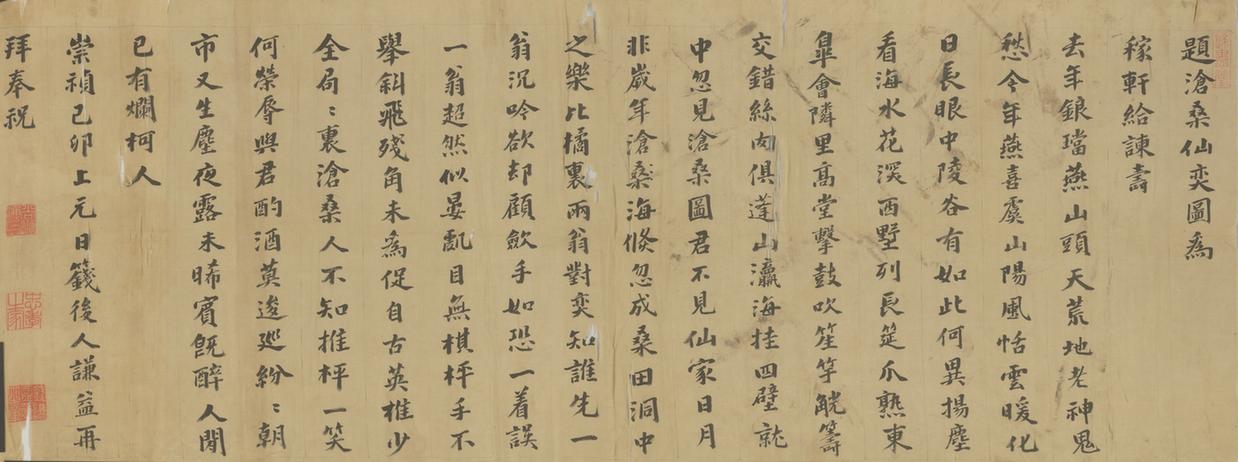 題滄桑仙奕圖為
稼軒給諫壽
去年鋃璫燕山頭天荒地老神鬼
愁今年燕喜虞山陽風恬雲暖化
日長眼中陵谷有如此何異揚塵
看海水花深西墅列長筵爪熟東
臯會隣里高堂擊鼓吹笙竽觥籌
交錯絲肉俱蓬山瀛海挂四壁就
中忽見滄桑圖君不見仙家日月
非歲年滄桑海倏忽成桑田洞中
之樂比橘裏兩翁對奕知誰先一
翁沉吟欲却顧歛手如恐一着誤
一翁超然似晏亂目無棋枰手不
舉斜飛殘角未為促自古英雄少
全局:裏滄桑人不知推枰一笑
何榮辱與君酌酒莫逡廵紛:朝
市又生塵夜露未晞賓既醉人間
已有爛柯人
崇禎己卯上元日籛後人謙益再
拜奉祝